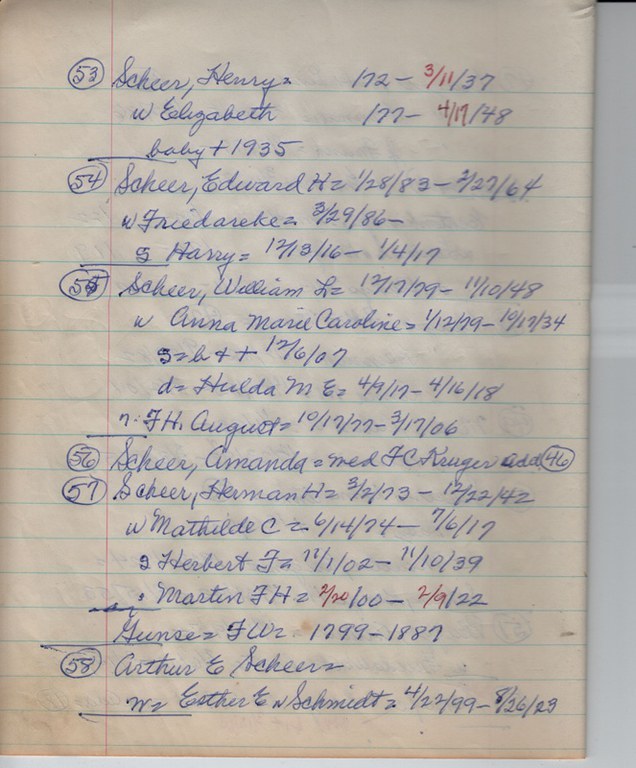 (53) Scheer, Henry = 172 - 3/11/37
w Elizabeth 177 - 4/17/48
baby + 1935
(54) Scheer, Edward H = 1/28/83 - 2/27/64
w Friedareke = 3/29/86 -
s Harry = 12/13/16 - 1/4/17
(55) Scheer, William L = 12/17/79 - 11/10/48
w Anna Marie Caroline = 1/12/79 - 10/17/34
s = b + + 12/6/07
d = Hulda M E = 4/9/17 - 4/16/18
F H. August = 10/17/77 - 3/17/06
(56) Scheer, Amanda = med F C Kruger add (46)
(57) Scheer, Herman H = 3/2/73 - 12/22/42
w Mathilde C = 6/14/74 - 7/6/17
s Herbert F = 11/1/02 - 11/10/39
. Martin F H = 2/20/00 - 2/9/22
Gunse = F W = 1799 - 1887
(58) Arthur E Scheer =
w = Esther E n Schmidt = 4/22/99 - 8/26/23